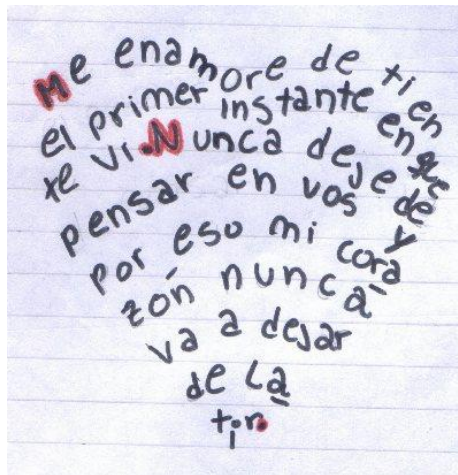 Me enamore de ti en
el primer instante en que
te vi. Nunca deje de
pensar en vos y
por eso mi cora
zón nunca
va a dejar
de La
tir.